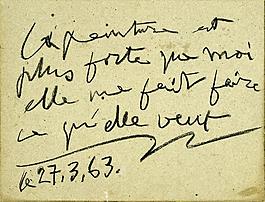 La peinture est
plus forte que moi
elle me fait faire
ce qu'elle veut
le 27.3.63.